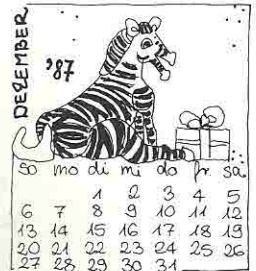 DEZEMBER
'87
so mo di mi do fr sa
1 2 3 4 5
6 7 8 9 10 11 12
13 14 15 16 17 18 19
20 21 22 23 24 25 26
27 28 29 30 31